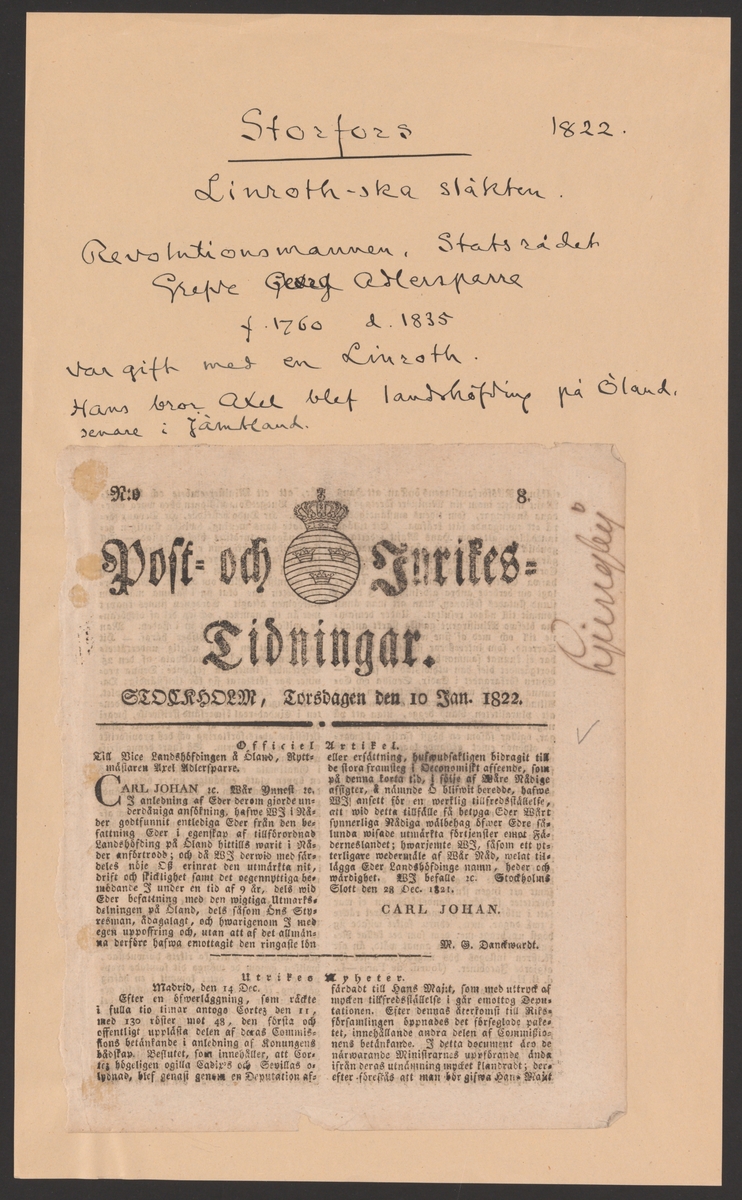 Storfors 1822.
Linroth-ska släkten.
Revolutionsmannen, Statsrådet
Grefve Georg Adlersparre
f. 1760 d. 1835
var gift med en Linroth.
Hans bror Axel blef landshöfding på Öland,
senare i Jämtland.
N:o 8.
Post- och Inrikes-
Tidningar.
STOCKHOLM, Torsdagen den 10 Jan. 1822.
Officiel Artikel.
Till Vice Landshöfdingen å Öland, Rytt-
mästaren Axel Adlersparre.
CARL JOHAN ꝛc. Wår Ynnest ꝛc.
I anledning af Eder derom gjorde un-
derdåniga ansökning, hafwe WJ i Nå-
der godtfunnit entlediga Eder från den be-
fattning Eder i egenskap af tillförordnad
Landshöfding på Öland hittills warit i Nå-
der anförtrodd; och då WJ derwid med sär-
deles nöje Oß erinrat den utmärkta nit,
drift och skicklighet samt det oegennyttiga be-
mödande I under en tid af 9 år, dels wid
Eder befattning med den wigtiga Utmarks-
delningen på Öland, dels såsom Öns Sty-
resman, ådagalagt, och hwarigenom I med
egen uppoffring och, utan att af det allmän-
na derföre hafwa emottagit den ringaste lön
eller ersättning, hufwudsakligen bidragit till
de stora framsteg i oeconomiskt afseende, som
på denna korta tid, i följe af Wåre Nådige
afsigter, å nämnde Ö blifwit beredde, hafwe
WJ ansett för en werklig tillfredsställelse,
att wid detta tillfälle få betyga Eder Wårt
synnerliga Nådiga wälbehag öfwer Edre så-
lunda wisade utmärkta förtjenster emot Fä-
derneslandet; hwarjemte WJ, såsom ett yt-
terligare wedermäle af Wår Nåd, welat til-
lägga Eder Landshöfdinge namn, heder och
wärdighet. WJ befalle ꝛc. Stockholms
Slott den 28 Dec. 1821.
CARL JOHAN.
M. G. Danckwardt.
Utrikes Nyheter.
Madrid, den 14 Dec.
Efter en öfwerläggning, som räckte
i fulla tio timar antogo Cortez den 11,
med 130 röster mot 48, den första och
offentligt upplästa delen af deras Commis-
sions betänkande i anledning af Konungens
bådskap. Beslutet, som innehåller, att Cor-
tez högeligen ogilla Cadix's och Sevillas o-
lydnad, blef genast genom en Deputation af-
färdadt till Hans Maj:t, som med uttryck af
mycken tillfredsställelse i går emottog Depu-
tationen. Efter dennas återkomst till Riks-
församlingen öppnades det förseglade pake-
tet, innehållande andra delen af Commissio-
nens betänkande. I detta document äro de
närwarande Ministrarnes uppförande ända
ifrån deras utnämning mycket klandradt; der-
efter föreslås att man bör gifwa Hans Maj:t